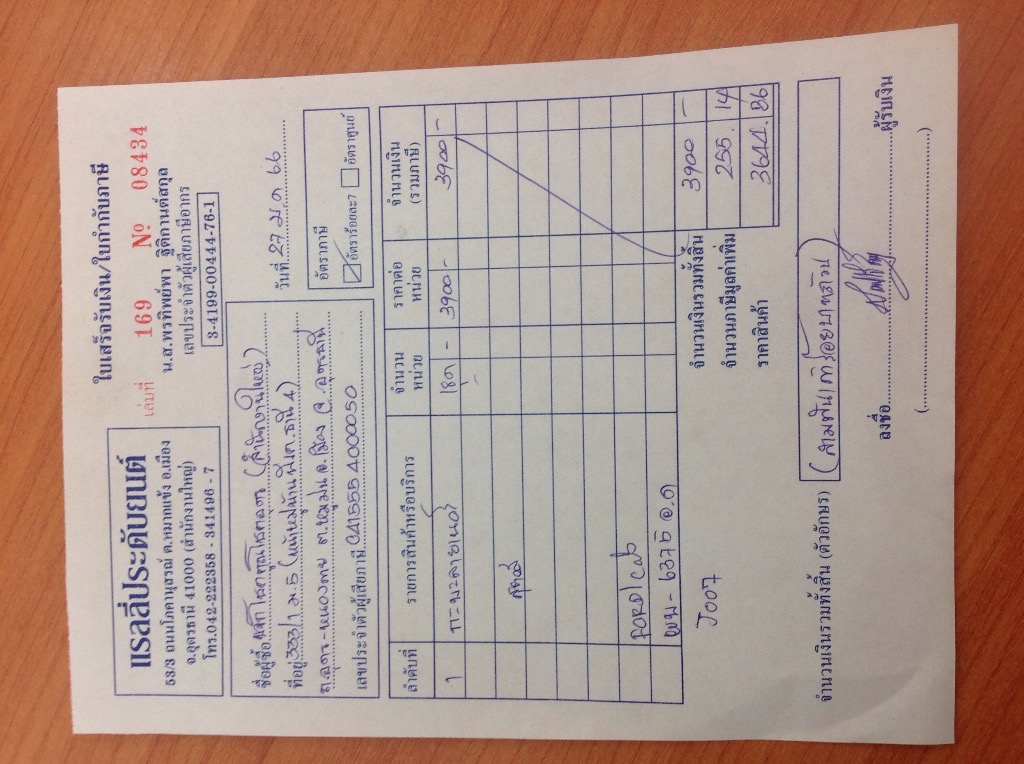 แรลลี่ประดับยนต์
53/3 ถนนโภคานุสรณ์ ต.หมากแข้ง อ.เมือง
จ.อุดรธานี 41000 (สำนักงานใหญ่)
โทร.042-222358 - 341496 - 7
ใบเสร็จรับเงิน/ใบกำกับภาษี
เล่มที่ 169 No 08434
น.ส.พรทิพย์พา ฐิติกานต์สกุล
เลขประจำตัวผู้เสียภาษีอากร
3-4199-00444-76-1
ชื่อผู้ซื้อ (สำนักงานใหญ่)
ที่อยู่ 333/1 ม.5
ถ.อุดร-หนองคาย ต.หมูม่น อ.เมือง จ.อุดรธานี
เลขประจำตัวผู้เสียภาษี 0415554000050
วันที่ 27 ม.ค 66
อัตราภาษี
อัตราร้อยละ7 อัตราศูนย์
ลำดับที่ รายการสินค้าหรือบริการ จำนวนหน่วย ราคาต่อหน่วย จำนวนเงิน (รวมภาษี)
1 กระบะลายเนอร์ 1ชุด - 3900 - 3900 -
FORD/cab
ผน - 6375 อ.ด
J007
จำนวนเงินรวมทั้งสิ้น 3900 -
จำนวนภาษีมูลค่าเพิ่ม 255.14
ราคาสินค้า 3644.86
จำนวนเงินรวมทั้งสิ้น (ตัวอักษร) (สามพันเก้าร้อยบาทถ้วน)
ลงชื่อ ผู้รับเงิน
( )